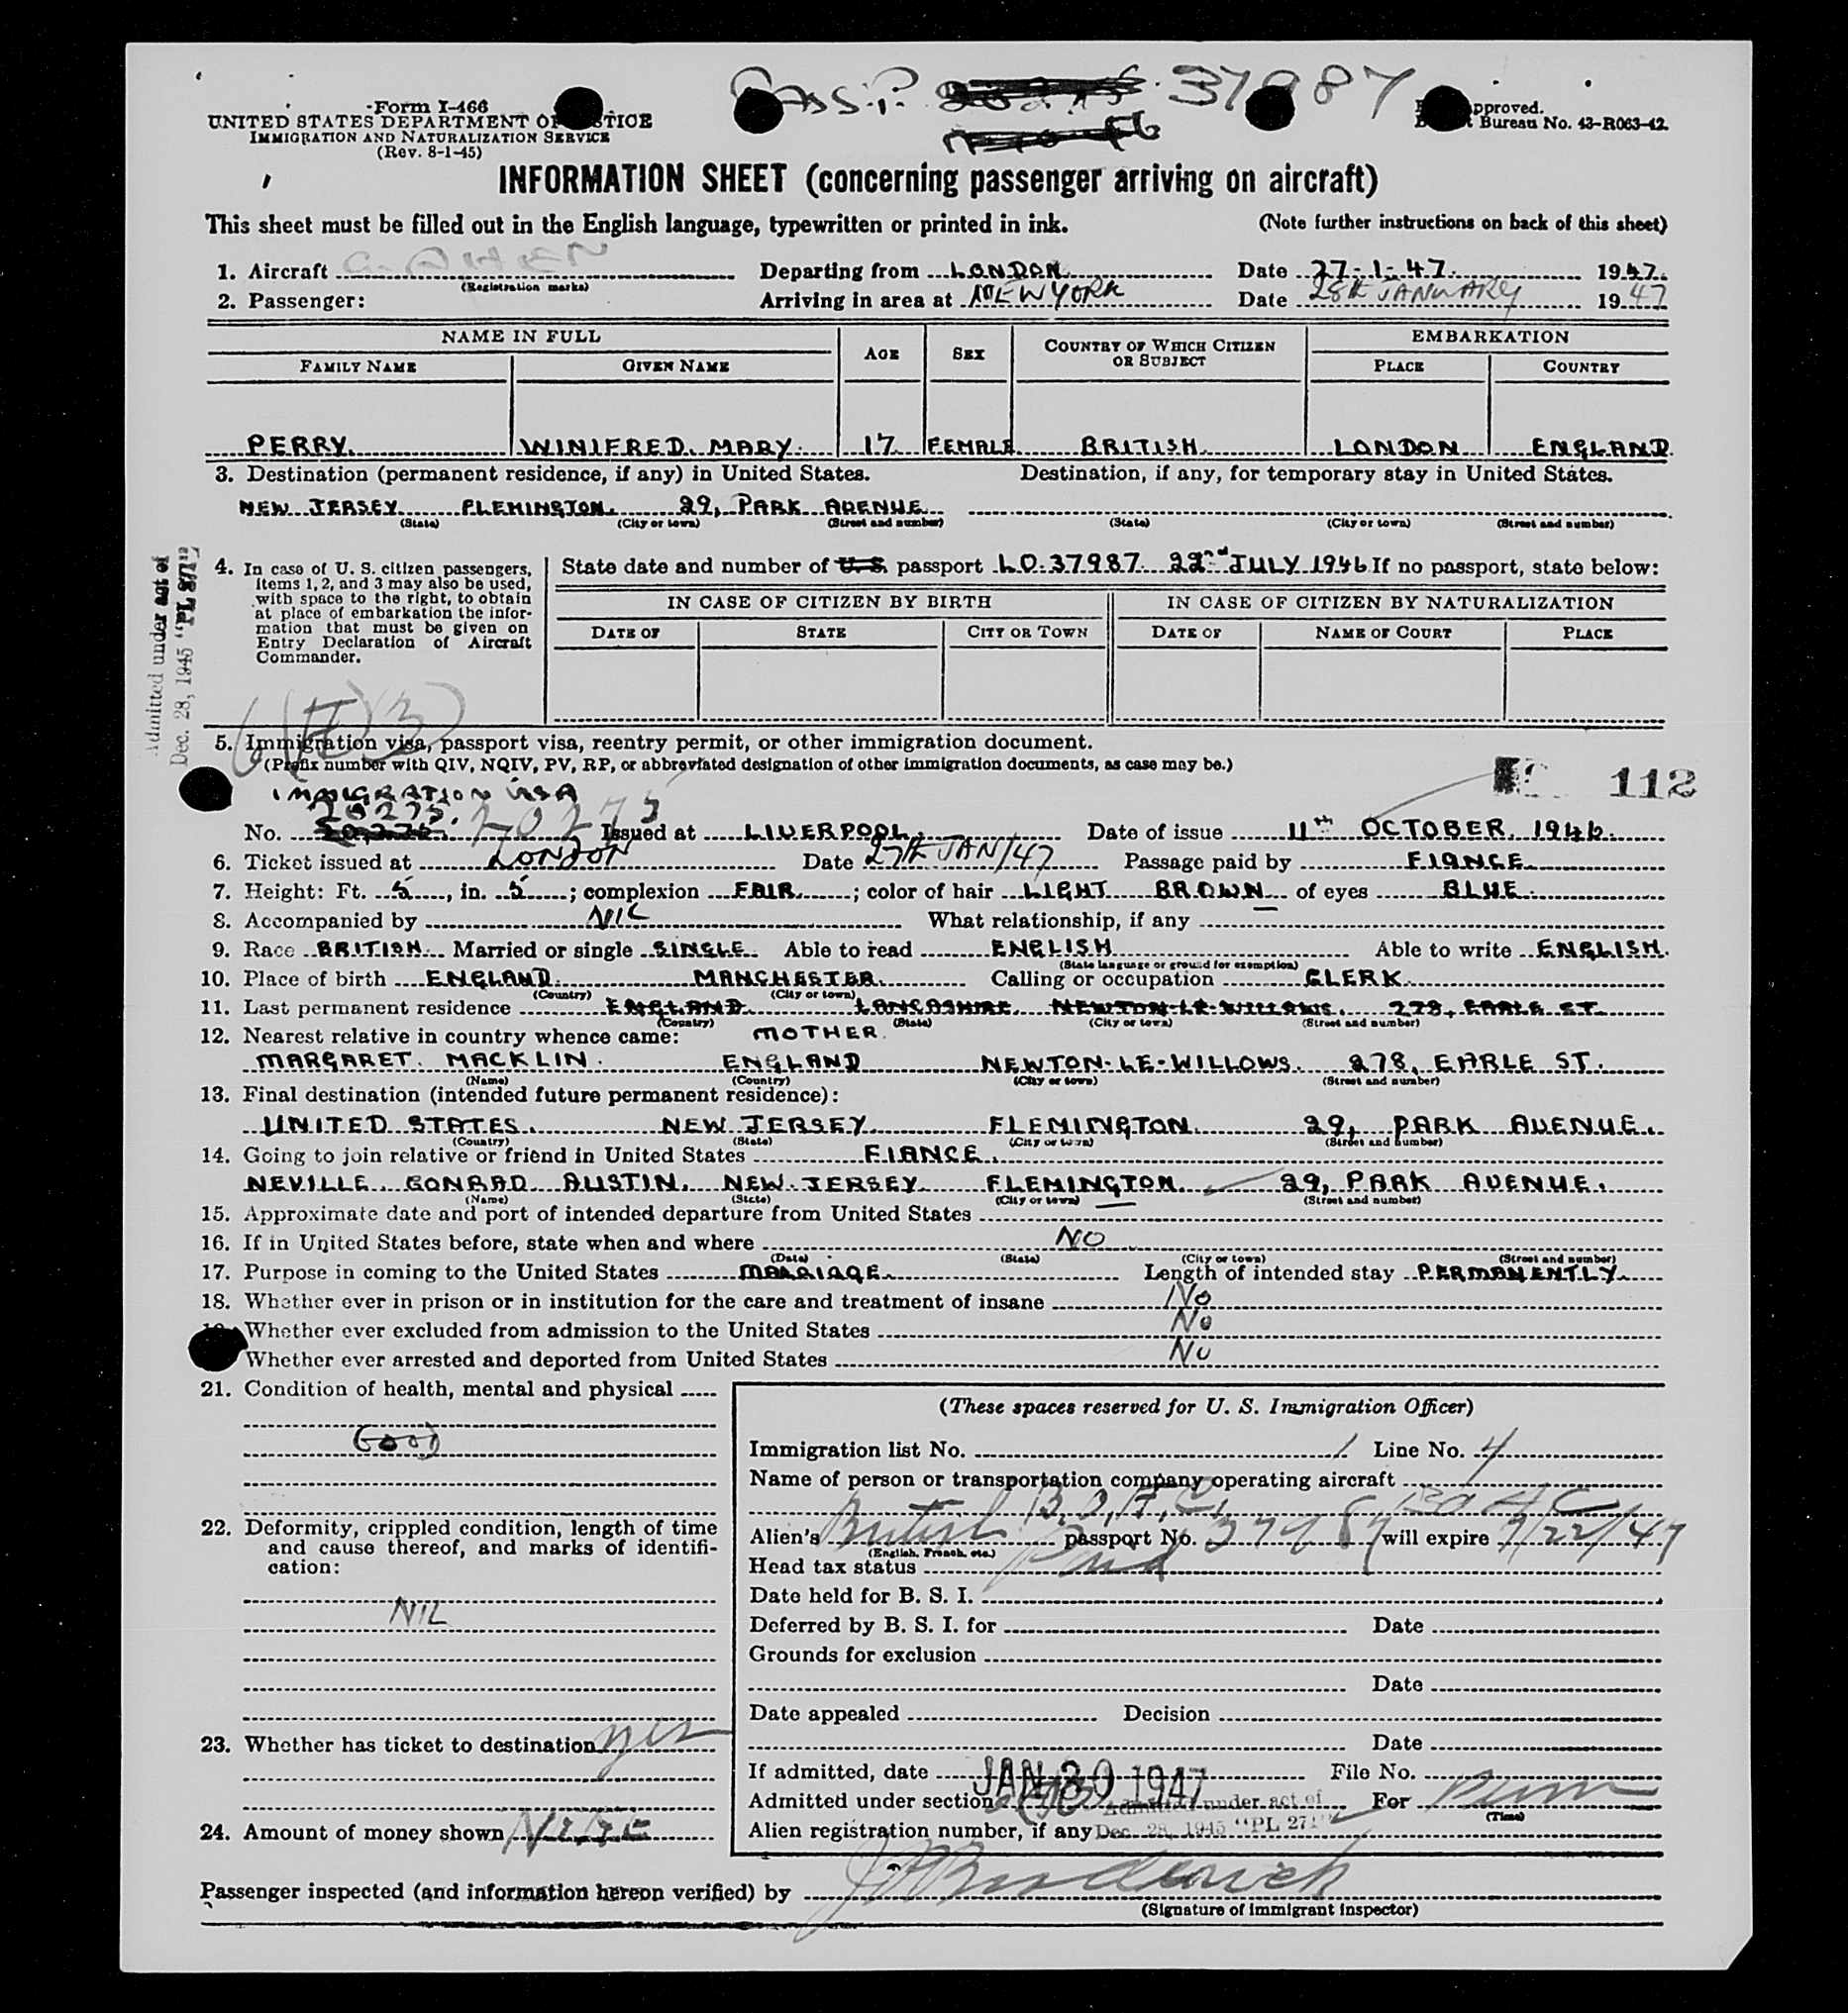 PASSP. 37987
Form I-466
UNITED STATES DEPARTMENT OF JUSTICE
IMMIGRATION AND NATURALIZATION SERVICE
(Rev. 8-1-45)
pproved.
Bureau No. 43-R063-42.
INFORMATION SHEET (concerning passenger arriving on aircraft)
This sheet must be filled out in the English language, typewritten or printed in ink. (Note further instructions on back of this sheet)
1. Aircraft Departing from LONDON Date 27-1-47. 1947.
(Registration marks)
2. Passenger: Arriving in area at NEW YORK Date 28th JANUARY 1947
NAME IN FULL AGE SEX COUNTRY OF WHICH CITIZEN OR SUBJECT EMBARKATION
FAMILY NAME GIVEN NAME PLACE COUNTRY
PERRY. WINIFRED. MARY. 17 FEMALE BRITISH. LONDON ENGLAND.
3. Destination (permanent residence, if any) in United States. Destination, if any, for temporary stay in United States.
NEW JERSEY FLEMINGTON. 29, PARK AVENUE
(State) (City or town) (Street and number) (State) (City or town) (Street and number)
Admitted under act of
Dec. 28, 1945 "PL 271"
4. In case of U. S. citizen passengers, items 1, 2, and 3 may also be used, with space to the right, to obtain at place of embarkation the information that must be given on Entry Declaration of Aircraft Commander.
State date and number of U.S. passport LO.37987 22nd JULY 1946 If no passport, state below:
IN CASE OF CITIZEN BY BIRTH IN CASE OF CITIZEN BY NATURALIZATION
DATE OF STATE CITY OR TOWN DATE OF NAME OF COURT PLACE
5. Immigration visa, passport visa, reentry permit, or other immigration document.
(Prefix number with QIV, NQIV, PV, RP, or abbreviated designation of other immigration documents, as case may be.)
112
IMMIGRATION VISA
20275. 20275
No. Issued at LIVERPOOL. Date of issue 11th OCTOBER, 1946.
6. Ticket issued at LONDON Date 27th JAN/47 Passage paid by FIANCE
7. Height: Ft. 5, in. 5; complexion FAIR; color of hair LIGHT BROWN of eyes BLUE.
8. Accompanied by NIL What relationship, if any
9. Race BRITISH. Married or single SINGLE. Able to read ENGLISH Able to write ENGLISH.
(State language or ground for exemption)
10. Place of birth ENGLAND. MANCHESTER. Calling or occupation CLERK.
(Country) (City or town)
11. Last permanent residence ENGLAND. LANCASHIRE. NEWTON-LE-WILLOWS. 278, EARLE ST.
(Country) (State) (City or town) (Street and number)
12. Nearest relative in country whence came: MOTHER.
MARGARET. MACKLIN. ENGLAND NEWTON-LE-WILLOWS. 278, EARLE ST.
(Name) (Country) (City or town) (Street and number)
13. Final destination (intended future permanent residence):
UNITED STATES. NEW JERSEY FLEMINGTON. 29, PARK AVENUE.
(Country) (State) (City or town) (Street and number)
14. Going to join relative or friend in United States FIANCE.
NEVILLE. CONRAD AUSTIN. NEW JERSEY FLEMINGTON. 29, PARK AVENUE.
(Name) (State) (City or town) (Street and number)
15. Approximate date and port of intended departure from United States
16. If in United States before, state when and where NO
(Date) (State) (City or town) (Street and number)
17. Purpose in coming to the United States MARRIAGE. Length of intended stay PERMANENTLY.
18. Whether ever in prison or in institution for the care and treatment of insane No
Whether ever excluded from admission to the United States No
Whether ever arrested and deported from United States No
21. Condition of health, mental and physical
GOOD
22. Deformity, crippled condition, length of time and cause thereof, and marks of identification:
NIL
23. Whether has ticket to destination yes
24. Amount of money shown
(These spaces reserved for U. S. Immigration Officer)
Immigration list No. 1 Line No. 4
Name of person or transportation company operating aircraft
B.O.A.C.
Alien's British passport No. 37987 will expire 7/22/47
(English, French, etc.)
Head tax status Paid
Date held for B. S. I.
Deferred by B. S. I. for Date
Grounds for exclusion
Date
Date appealed Decision
Date
If admitted, date JAN 30 1947 File No.
Admitted under section Admitted under act of For Perm
(Time)
Alien registration number, if any Dec. 28, 1945 "PL 271"
Passenger inspected (and information hereon verified) by
(Signature of immigrant inspector)